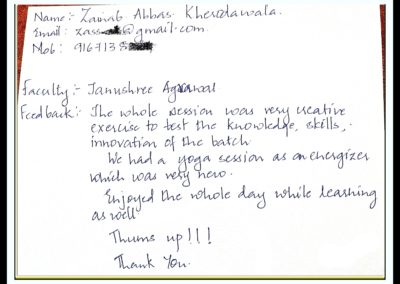 Name:- Zainab Abbas Kherodawala.
Email: zass @gmail.com
Mob: 916713
Faculty:- Tanushree Agrawal
Feedback:- The whole session was very creative
exercise to test the knowledge, skills,
innovation of the batch
We had a yoga session as an energizer
which was very new.
Enjoyed the whole day while learning
as well
Thums up!!!
Thank You.